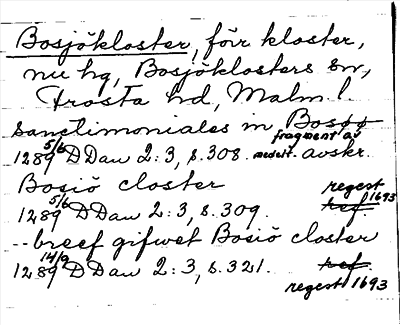 Bosjökloster, förr kloster,
nu hg, Bosjöklosters sn,
Frosta hd, Malm. l.
Sanctimoniales in Bosöö
1289 5/6 DDan 2:3, s. 308. fragment av medelt. avskr.
Bosiö closter
1289 5/6 DDan 2:3, s. 309. ref. regest 1693
-- breef gifwet Bosiö closter
1289 14/9 DDan 2:3, s. 321. ref.
regest 1693